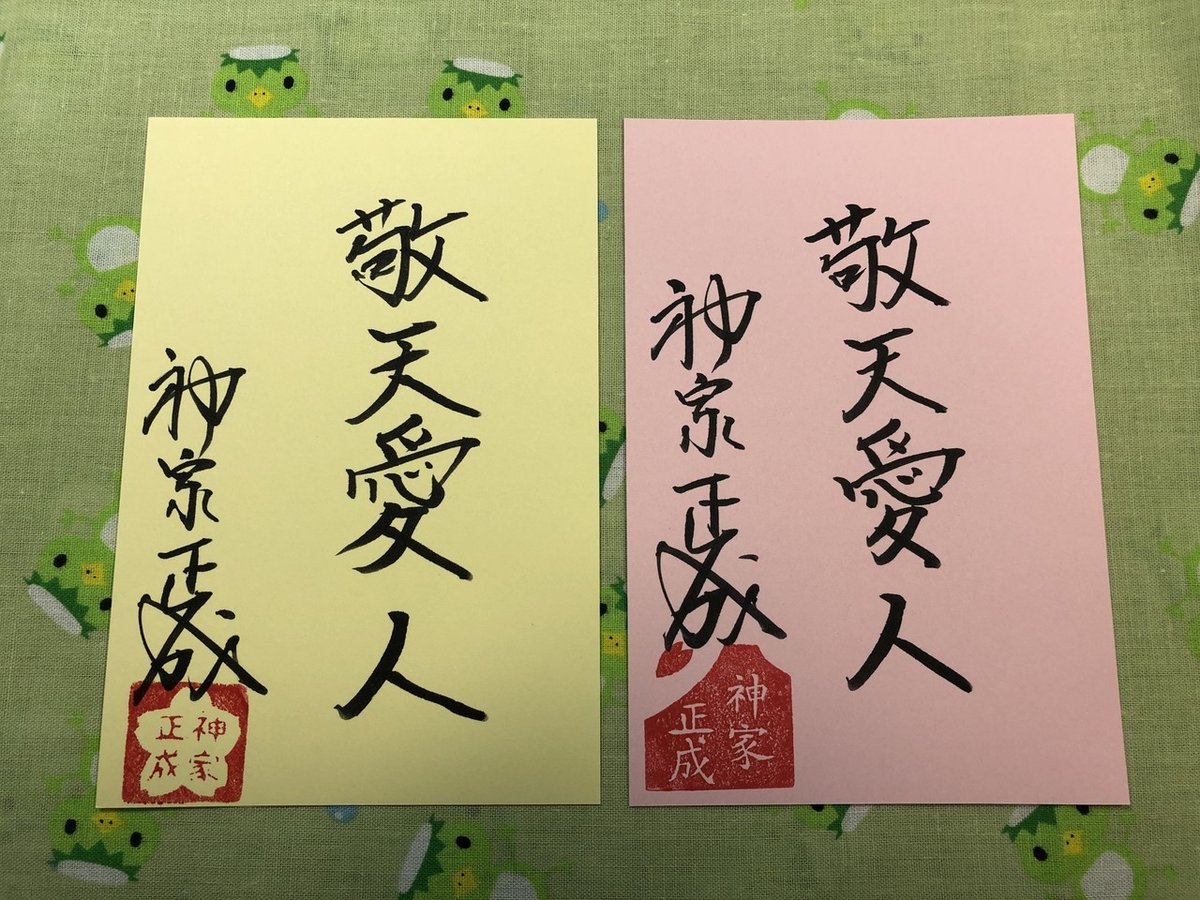 敬天愛人
神家正成
神家
正成
敬天愛人
神家正成
神家
正成